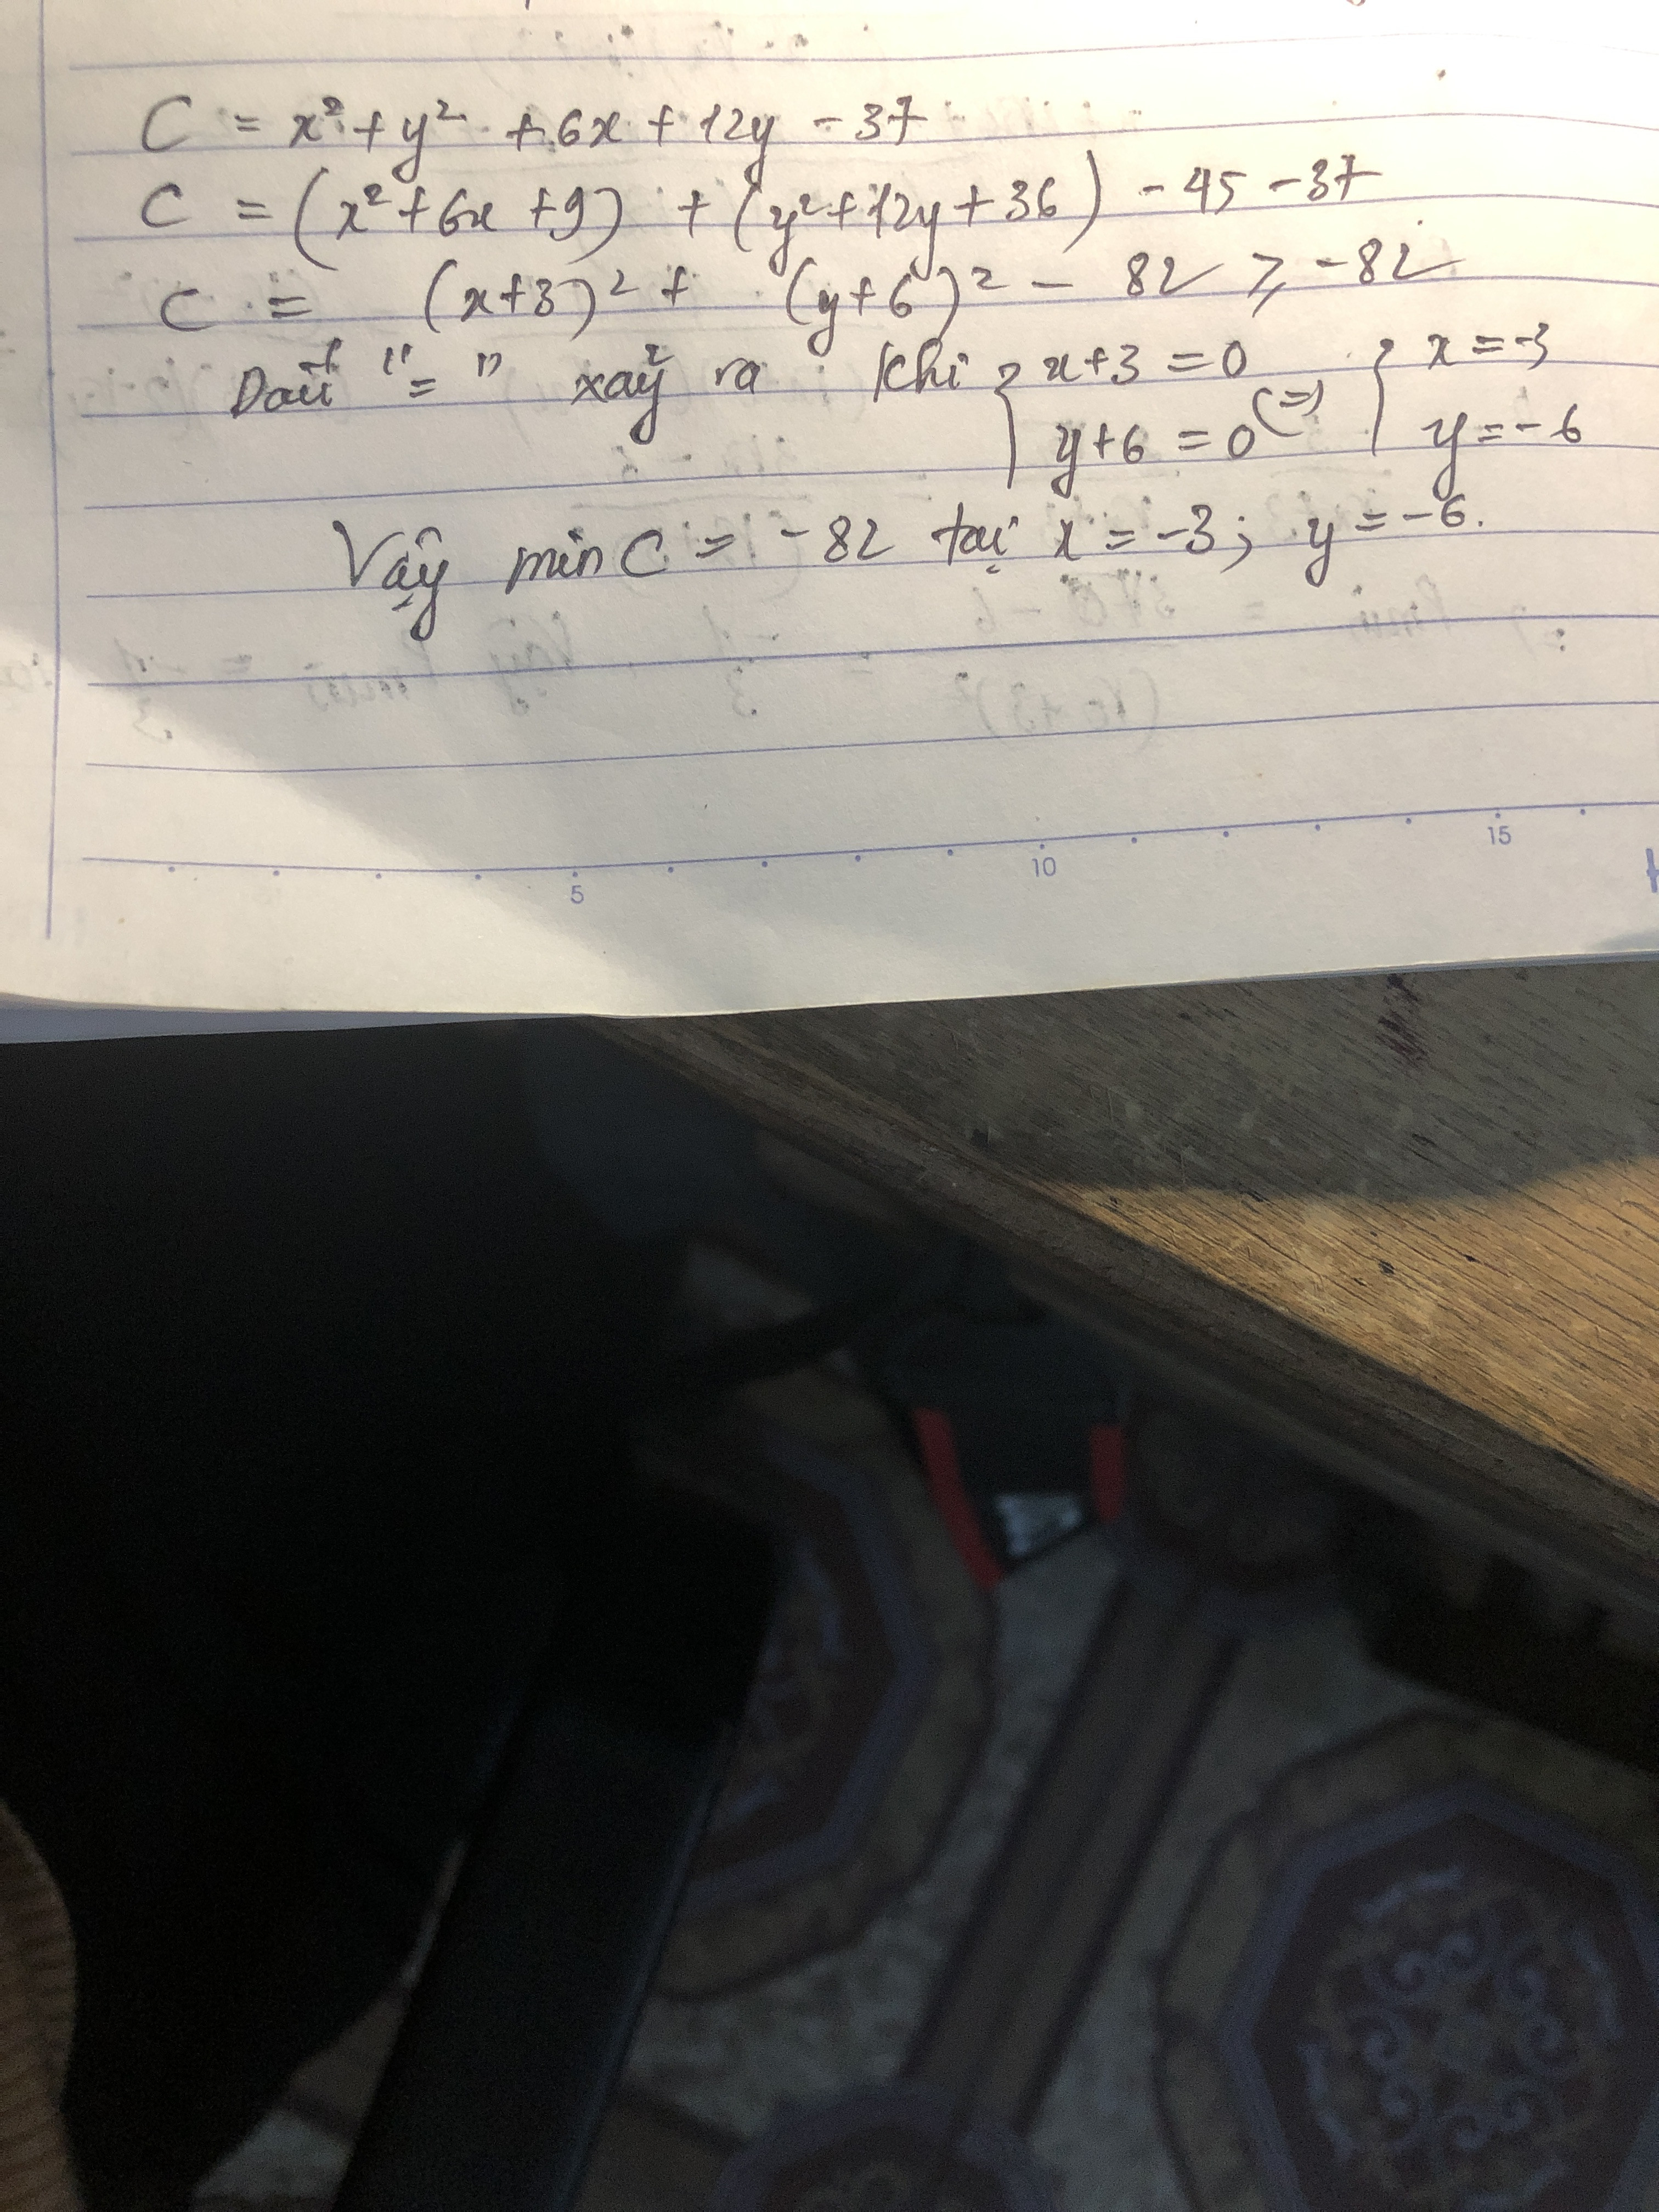 C = x² + y² + 6x + 12y - 37
C = (x² + 6x + 9) + (y² + 12y + 36) - 45 - 37
C = (x+3)² + (y+6)² - 82 ≥ -82
Dấu "=" xảy ra khi { x+3 = 0 (=) { x = -3
y+6 = 0 y = -6
Vậy min C = -82 tại x = -3; y = -6.
5 10 15